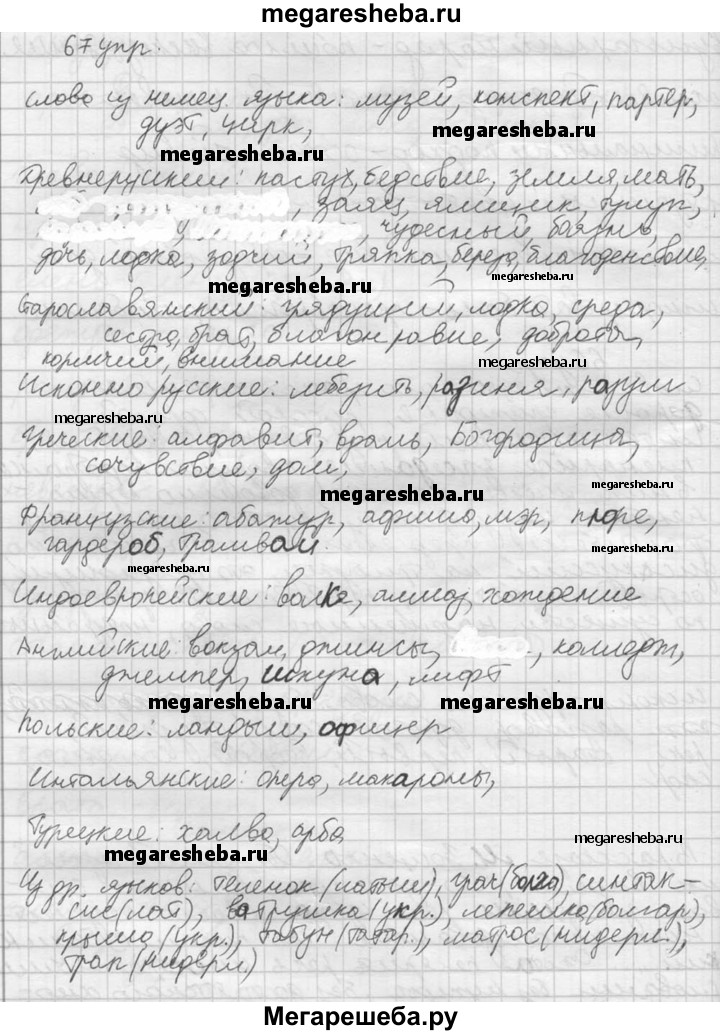 megaresheba.ru
67 упр.
слова из немец. языка: музей, конспект, партер,
дуэт, цирк,
megaresheba.ru
megaresheba.ru
Древнерусский: пастух, бедствие, земля, мать,
, заяц, ямщик, тулуп,
, чудесный, боязнь,
дочь, лодка, зодчий, тряпка, берёза, благоденствие,
megaresheba.ru
megaresheba.ru
Старославянский: грядущий, лодка, среда,
сестра, брат, благонравие, доброта,
кормчий, внимание
megaresheba.ru
Исконно русские: лебезить, разиня, разум
megaresheba.ru
megaresheba.ru
Греческие: алфавит, враль, Богородица,
сочувствие, дом,
megaresheba.ru
megaresheba.ru
Французские: абажур, афиша, мэр, пюре,
гардероб, трамвай.
megaresheba.ru
megaresheba.ru
Индоевропейские: волк, алмаз, хождение
Английские: вокзал, джинсы, , колледж,
джемпер, шкуна, лифт
megaresheba.ru
megaresheba.ru
Польские: ландыш, офицер
Интальянские: опера, макароны,
Турецкие: халва, арба
megaresheba.ru
megaresheba.ru
Из др. языков: теленок (латыш), грач (болга), синтак-
сис (лат), ватрушка (укр.), лепешка (болгар),
крыша (укр.), табун (татар.), матрос (нидерл.),
трап (нидерл.)
Мегарешеба.ру